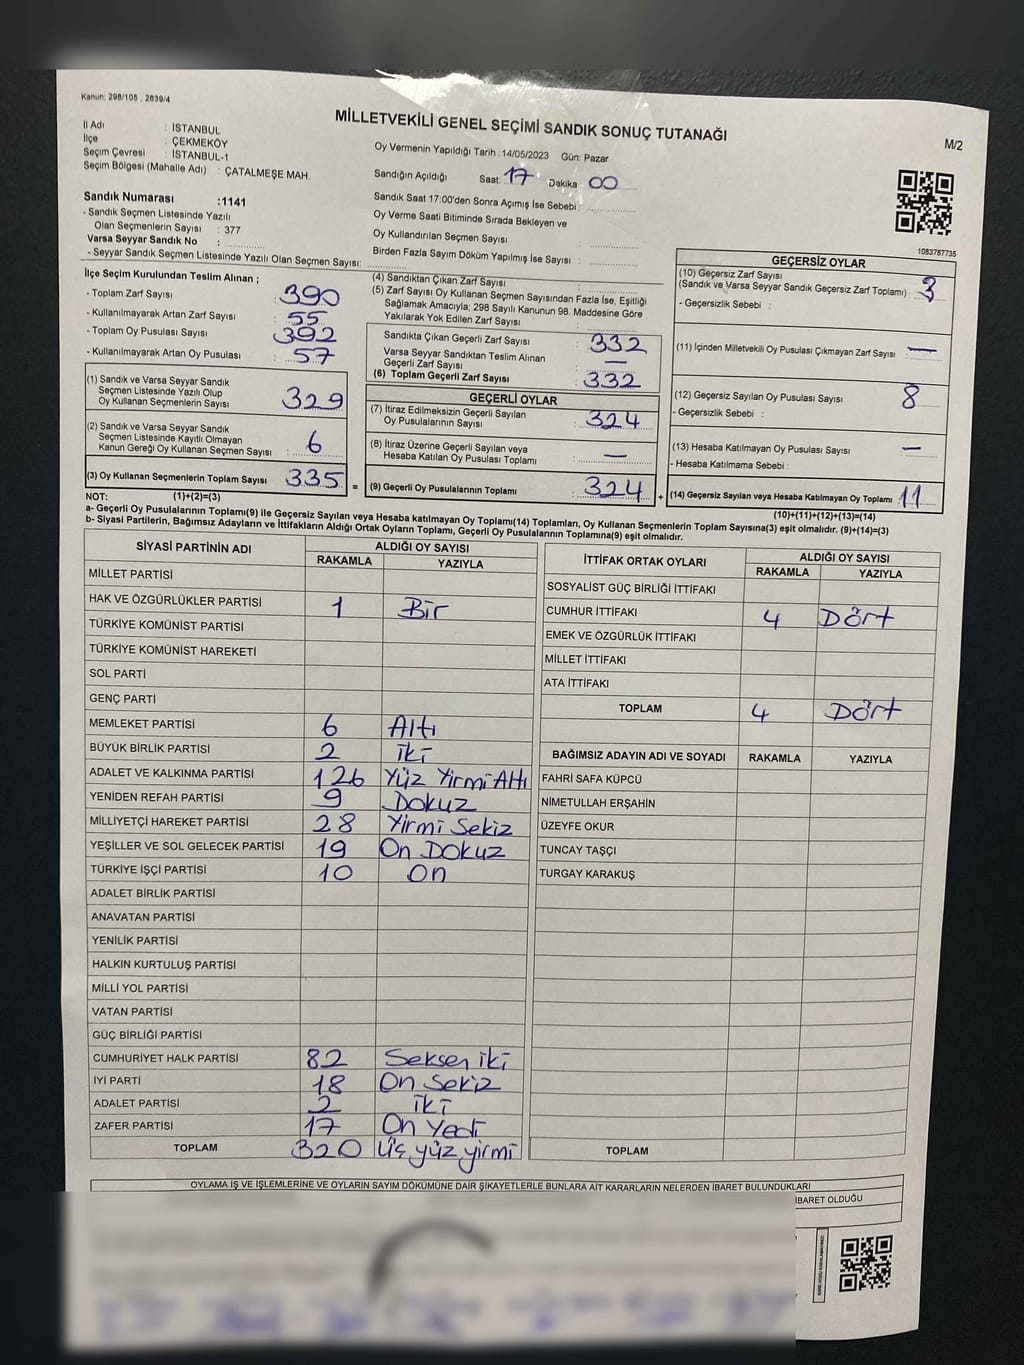 Kanun: 298/105 , 2839/4
MİLLETVEKİLİ GENEL SEÇİMİ SANDIK SONUÇ TUTANAĞI
M/2
İl Adı : İSTANBUL
İlçe : ÇEKMEKÖY
Seçim Çevresi : İSTANBUL-1
Seçim Bölgesi (Mahalle Adı) : ÇATALMEŞE MAH.
Oy Vermenin Yapıldığı Tarih :14/05/2023 Gün: Pazar
Sandığın Açıldığı Saat: 17 Dakika : 00
Sandık Saat 17:00'den Sonra Açımış İse Sebebi :
Oy Verme Saati Bitiminde Sırada Bekleyen ve
Oy Kullandırılan Seçmen Sayısı :
Birden Fazla Sayım Döküm Yapılmış İse Sayısı :
Sandık Numarası :1141
- Sandık Seçmen Listesinde Yazılı
Olan Seçmenlerin Sayısı : 377
Varsa Seyyar Sandık No :
- Seyyar Sandık Seçmen Listesinde Yazılı Olan Seçmen Sayısı:
1083787735
İlçe Seçim Kurulundan Teslim Alınan ;
- Toplam Zarf Sayısı : 390
- Kullanılmayarak Artan Zarf Sayısı : 55
- Toplam Oy Pusulası Sayısı : 392
- Kullanılmayarak Artan Oy Pusulası : 57
(1) Sandık ve Varsa Seyyar Sandık
Seçmen Listesinde Yazılı Olup
Oy Kullanan Seçmenlerin Sayısı : 329
(2) Sandık ve Varsa Seyyar Sandık
Seçmen Listesinde Kayıtlı Olmayan
Kanun Gereği Oy Kullanan Seçmen Sayısı : 6
(3) Oy Kullanan Seçmenlerin Toplam Sayısı : 335
(4) Sandıktan Çıkan Zarf Sayısı :
(5) Zarf Sayısı Oy Kullanan Seçmen Sayısından Fazla İse, Eşitliği
Sağlamak Amacıyla; 298 Sayılı Kanunun 98. Maddesine Göre
Yakılarak Yok Edilen Zarf Sayısı :
Sandıkta Çıkan Geçerli Zarf Sayısı : 332
Varsa Seyyar Sandıktan Teslim Alınan
Geçerli Zarf Sayısı : —
(6) Toplam Geçerli Zarf Sayısı : 332
GEÇERLİ OYLAR
(7) İtiraz Edilmeksizin Geçerli Sayılan
Oy Pusulalarının Sayısı : 324
(8) İtiraz Üzerine Geçerli Sayılan veya
Hesaba Katılan Oy Pusulası Toplamı : —
= (9) Geçerli Oy Pusulalarının Toplamı : 324 +
GEÇERSİZ OYLAR
(10) Geçersiz Zarf Sayısı
(Sandık ve Varsa Seyyar Sandık Geçersiz Zarf Toplamı) : 3
- Geçersizlik Sebebi :
(11) İçinden Milletvekili Oy Pusulası Çıkmayan Zarf Sayısı : —
(12) Geçersiz Sayılan Oy Pusulası Sayısı : 8
- Geçersizlik Sebebi :
(13) Hesaba Katılmayan Oy Pusulası Sayısı : —
- Hesaba Katılmama Sebebi :
(14) Geçersiz Sayılan veya Hesaba Katılmayan Oy Toplamı : 11
NOT: (1)+(2)=(3)
(10)+(11)+(12)+(13)=(14)
a- Geçerli Oy Pusulalarının Toplamı(9) ile Geçersiz Sayılan veya Hesaba katılmayan Oy Toplamı(14) Toplamları, Oy Kullanan Seçmenlerin Toplam Sayısına(3) eşit olmalıdır. (9)+(14)=(3)
b- Siyasi Partilerin, Bağımsız Adayların ve İttifakların Aldığı Ortak Oyların Toplamı, Geçerli Oy Pusulalarının Toplamına(9) eşit olmalıdır.
SİYASİ PARTİNİN ADI ALDIĞI OY SAYISI
RAKAMLA YAZIYLA
MİLLET PARTİSİ
HAK VE ÖZGÜRLÜKLER PARTİSİ 1 Bir
TÜRKİYE KOMÜNİST PARTİSİ
TÜRKİYE KOMÜNİST HAREKETİ
SOL PARTİ
GENÇ PARTİ
MEMLEKET PARTİSİ 6 Altı
BÜYÜK BİRLİK PARTİSİ 2 iki
ADALET VE KALKINMA PARTİSİ 126 Yüz Yirmi Altı
YENİDEN REFAH PARTİSİ 9 Dokuz
MİLLİYETÇİ HAREKET PARTİSİ 28 Yirmi Sekiz
YEŞİLLER VE SOL GELECEK PARTİSİ 19 On Dokuz
TÜRKİYE İŞÇİ PARTİSİ 10 On
ADALET BİRLİK PARTİSİ
ANAVATAN PARTİSİ
YENİLİK PARTİSİ
HALKIN KURTULUŞ PARTİSİ
MİLLİ YOL PARTİSİ
VATAN PARTİSİ
GÜÇ BİRLİĞİ PARTİSİ
CUMHURİYET HALK PARTİSİ 82 Seksen iki
İYİ PARTİ 18 On Sekiz
ADALET PARTİSİ 2 iki
ZAFER PARTİSİ 17 On Yedi
TOPLAM 320 Üç yüz yirmi
İTTİFAK ORTAK OYLARI ALDIĞI OY SAYISI
RAKAMLA YAZIYLA
SOSYALİST GÜÇ BİRLİĞİ İTTİFAKI
CUMHUR İTTİFAKI 4 Dört
EMEK VE ÖZGÜRLÜK İTTİFAKI
MİLLET İTTİFAKI
ATA İTTİFAKI
TOPLAM 4 Dört
BAĞIMSIZ ADAYIN ADI VE SOYADI RAKAMLA YAZIYLA
FAHRİ SAFA KÜPCÜ
NİMETULLAH ERŞAHİN
ÜZEYFE OKUR
TUNCAY TAŞÇI
TURGAY KARAKUŞ
TOPLAM
OYLAMA İŞ VE İŞLEMLERİNE VE OYLARIN SAYIM DÖKÜMÜNE DAİR ŞİKAYETLERLE BUNLARA AİT KARARLARIN NELERDEN İBARET BULUNDUKLARI
İBARET OLDUĞU